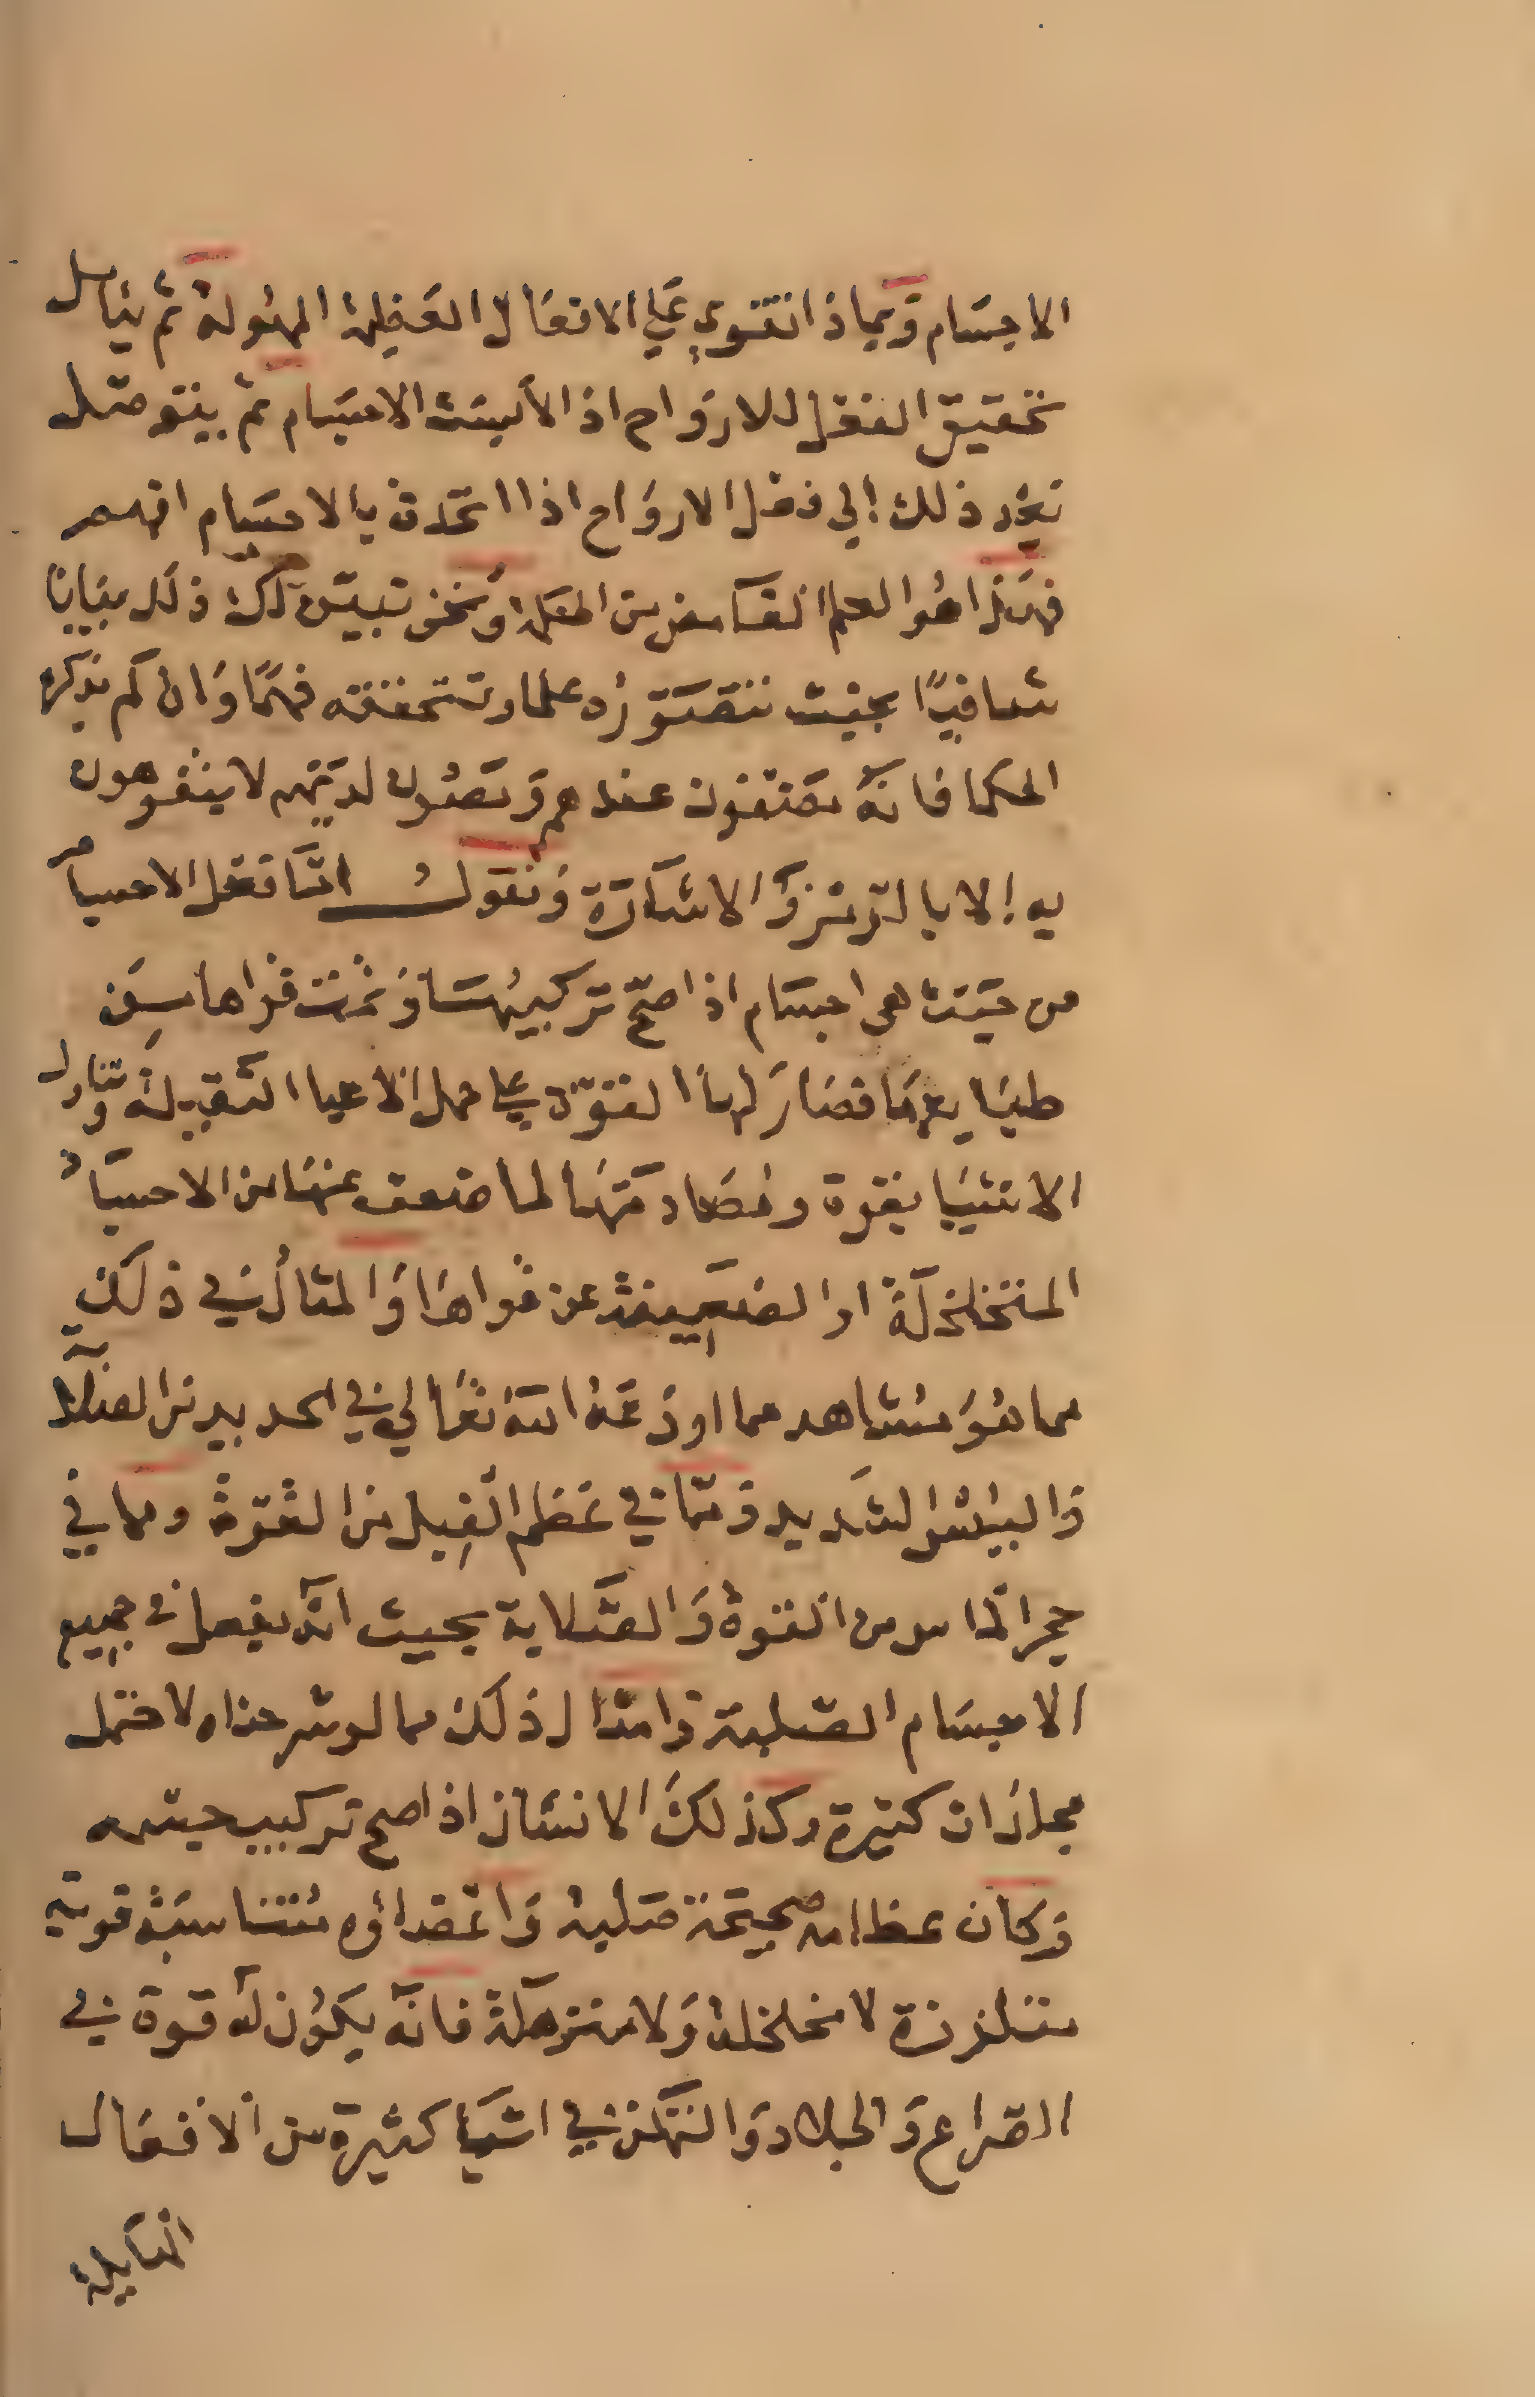 الاجسام وبماذا تقوي علي الافعال العظيمة المهولة ثم يتاسل
تحقيق الفعل للارواح اذ الابست الاجسام ثم يتوصل
بعد ذلك الي فعل الارواح اذا اتحدت بالاجسام افهم
فهذا هو العلم الغامض من الحكمة ونحن نبين لك ذلك بيانا
شافيًا بحيث تتصوره علما وتتحققه فهمًا وان لم يذكره
الحكما فانه مصون عندهم ومصون لديهم لا يتفوهون
به الا بالرمز والاشارة ونقول اما فعل الاجسام
من حيث هي اجسام اذا صح تركيبها وتمت قواها من
طبايعها فصار لها القوة علي حمل الاعبا الثقيلة وتناول
الاشيا بقوة ومصادمتها لما ضعف عنها من الاجساد
المتخلخلة او الضعيفة عن قواها والمثال في ذلك
مما هو مشاهد مما اودعه الله تعالي في الحديد من الصلابة
والباس الشديد وما في عظم الفيل من القوة وما في
حجر الماس من القوة والصلابة بحيث انه يفعل في جميع
الاجسام الصلبة وامثال ذلك مما لو شرحناه لاحتمل
مجلدات كثيرة وكذلك الانسان اذا صح تركيب جسده
وكان عظامه صحيحة صلبة واعضاؤه متناسبة قوية
متلززة لا متخلخلة ولا مترهلة فانه يكون له قوة في
الصراع والجلاد والتمكن في اشيا كثيرة من الافعال
الهايلة